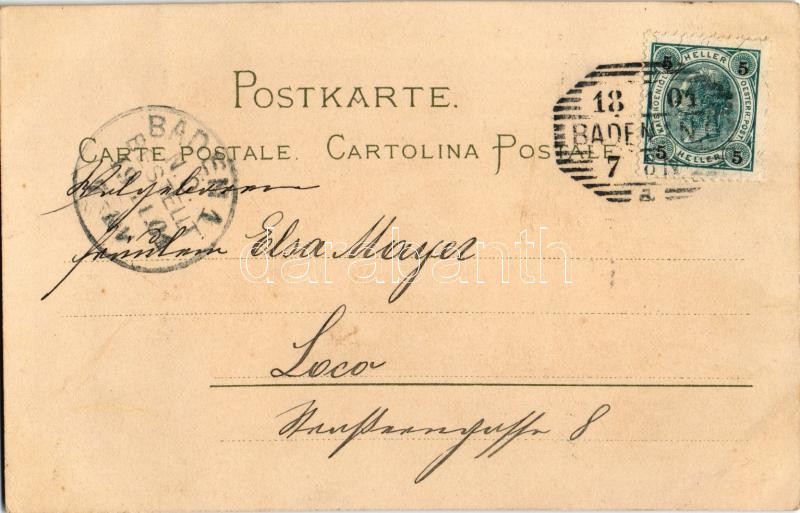 POSTKARTE.
CARTE POSTALE. CARTOLINA POSTALE.
5 HELLER 5
KAIS. KOENIGL. OESTERR. POST.
5 HELLER 5
18 01
BADEN N.Ö.
7
1
BADEN 1.
BESTELLT
Fräulein Elsa Mayer
Loco
8
darabanth